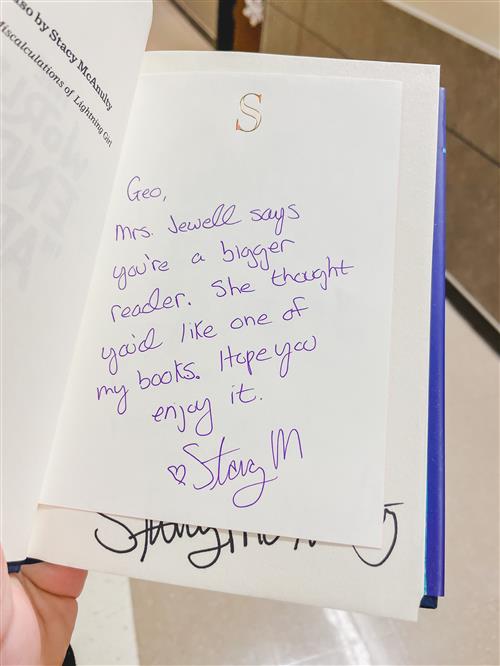 lso by Stacy McAnulty
Miscalculations of Lightning Girl
S
Geo,
Mrs. Jewell says
you're a bigger
reader. She thought
you'd like one of
my books. Hope you
enjoy it.
♡Stacy M